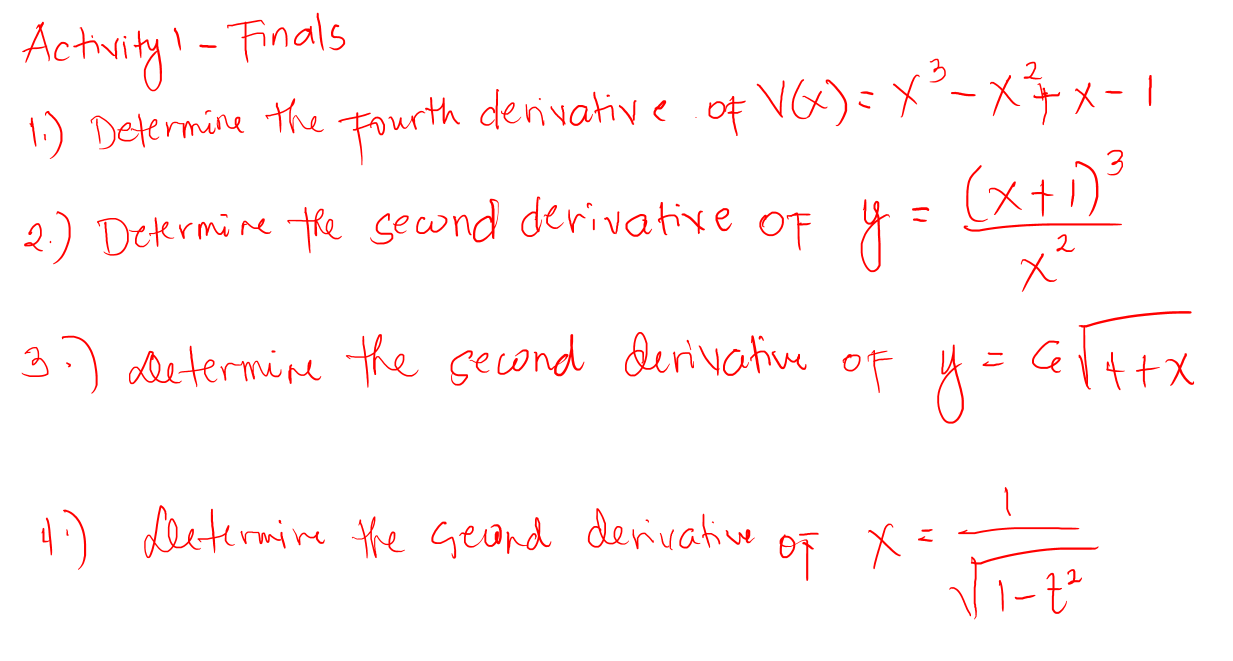 Activity 1 - Finals
1.) Determine the Fourth derivative of V(x) = x³ - x² + x - 1
2.) Determine the second derivative OF y = (x+1)³ / x²
3.) Determine the second derivative OF y = 6√(4+x)
4.) Determine the second derivative OF x = 1 / √(1-t²)